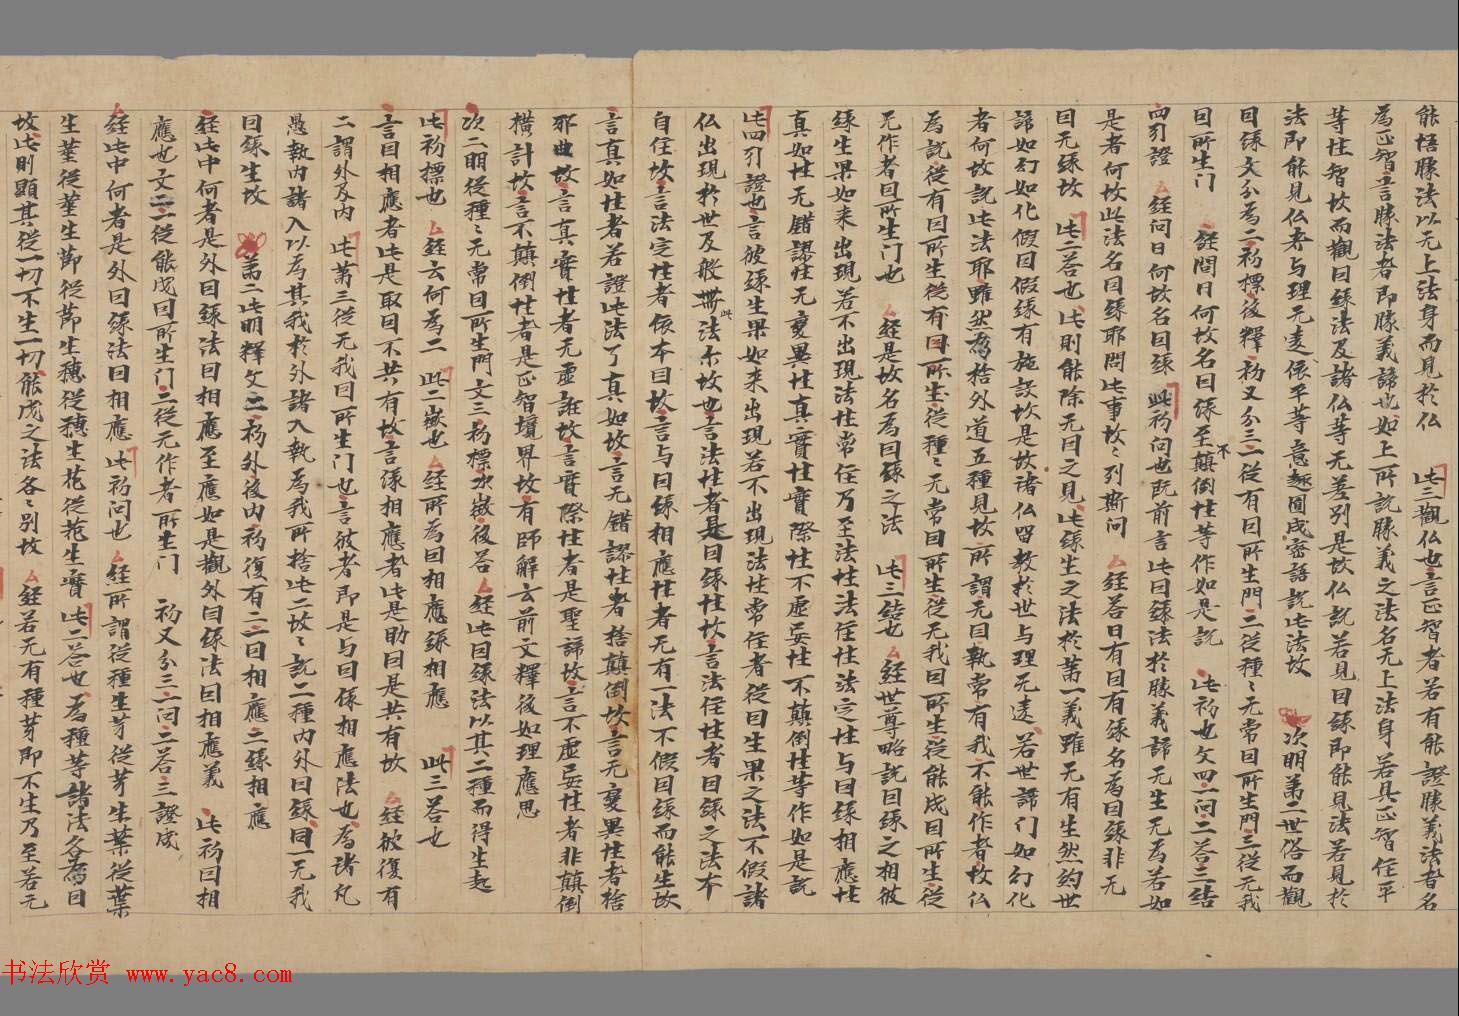 能悟勝法以无上法身而見於仏 此三觀仏也言正智者若有能證勝義法者名
為正智言勝法者即勝義諦也如上所説勝義之法名无上法身若具正智住平
等性智故而觀曰緣法及諸仏等无差别是故仏説若見曰緣即能見法若見於
法即能見仏者与理无違依平等意趣圓成密語説此法故 次明第二世俗而觀
曰緣文分為二初標後釋初又分三一從有曰所生門二從種〻无常曰所生門三從无我
曰所生门 經問曰何故名曰緣至不顛倒性等作如是説 此初也文四一問二荅三結
四引證 經問曰何故名曰緣 此初问也既前言此曰緣法於勝義諦无生无為若如
是者何故此法名曰緣耶問此事故〻列斯问 經荅曰有曰有緣名為曰緣非无
曰无緣故 此二荅也此則能除无曰之見此緣生之法於第一義雖无有生然約世
諦如幻如化假曰假緣有施設故是故諸仏留教於世与理无違若世諦门如幻化
者何故説此法耶雖然為捨外道五種見故所謂无曰執常有我不能作者故仏
為説從有曰所生從有曰所生從種〻无常曰所生從无我曰所生從能成曰所生從
无作者曰所生门也 經是故名為曰緣之法 此三結也 經世尊略説曰緣之相彼
緣生果如来出現若不出現法性常住乃至法性法住性法定性与曰緣相應性
真如性无錯謬性无變異性真實性實際性不虛妄性不顛倒性等作如是説
此四引證也言彼緣生果如来出現若不出現法性常住者從曰生果之法不假諸
仏出現於世及般此法尒故也言法性者是曰緣性故言法住性者曰緣之法本
自住故言法定性者依本曰故言与曰緣相應性者无有一法不假曰緣而能生故
言真如性者若證此法了真如故言无錯謬性者捨顛倒故言无變異性者捨
邪曲故言真實性者无虛誑故言實際性者是聖諦故言不虛妄性者非顛倒
橫計故言不顛倒性者是正智境界故有師解云前文釋後如理應思
次二明從種〻无常曰所生門文三初標次徵後荅 經此曰緣法以其二種而得生起
此初標也 經云何為二 此二徵也 經所為曰相應緣相應 此三荅也
言曰相應者此是取曰不共有故言緣相應者此是助曰是共有故 經彼復有
二謂外及内 此第三從无我曰所生门也言彼者即是与曰緣相應法也為諸凡
愚執内諸入以為其我於外諸入執為我所捨此二故〻説二種内外曰緣同一无我
曰緣生故 第二此明釋文二初外後内初復有二一曰相應二緣相應
經此中何者是外曰緣法曰相應至應如是觀外曰緣法曰相應義 此初曰相
應也文二一從能成曰所生门二從无作者所生门 初又分三一问二荅三證成
經此中何者是外曰緣法曰相應 此初问也 經所謂從種生芽從芽生葉從葉
生莖從莖生莭從莭生穗從穗生花從花生實 此二荅也為種等諸法各為曰
故此則顯其從一切不生一切能成之法各〻别故 經若无有種芽即不生乃至若无
书法欣赏 www.yac8.com